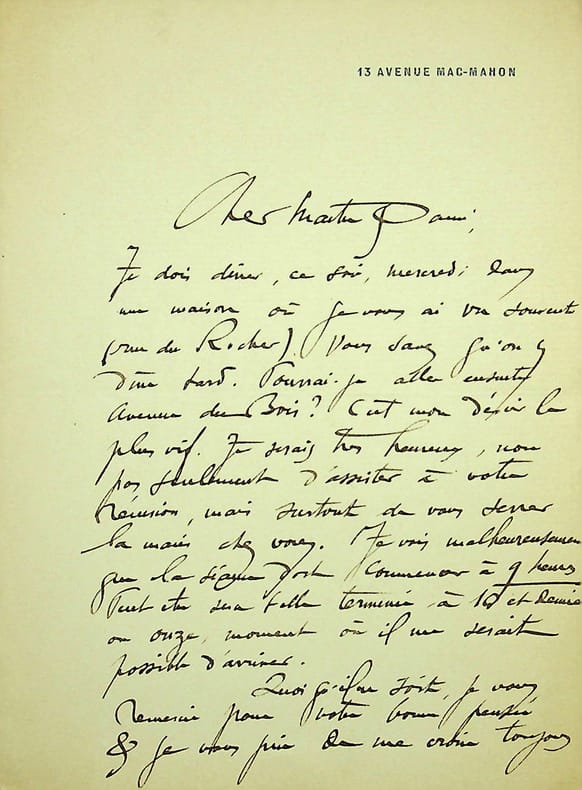 13 AVENUE MAC-MAHON
Cher Maître & ami,
Je dois dîner, ce soir, mercredi dans
une maison où je vous ai vu souvent
(rue du Rocher). Vous savez qu'on y
dîne tard. Pourrai-je aller ensuite
Avenue du Bois? C'est mon désir le
plus vif. Je serais très heureux, non
pas seulement d'assister à votre
réunion, mais surtout de vous serrer
la main chez vous. Je vois malheureusement
que la séance doit commencer à 9 heures
Peut être sera t-elle terminée à 10 et demie
ou onze, moment où il me serait
possible d'arriver.
Quoi qu'il en soit, je vous
remercie pour votre bonne pensée
& je vous prie de me croire toujours